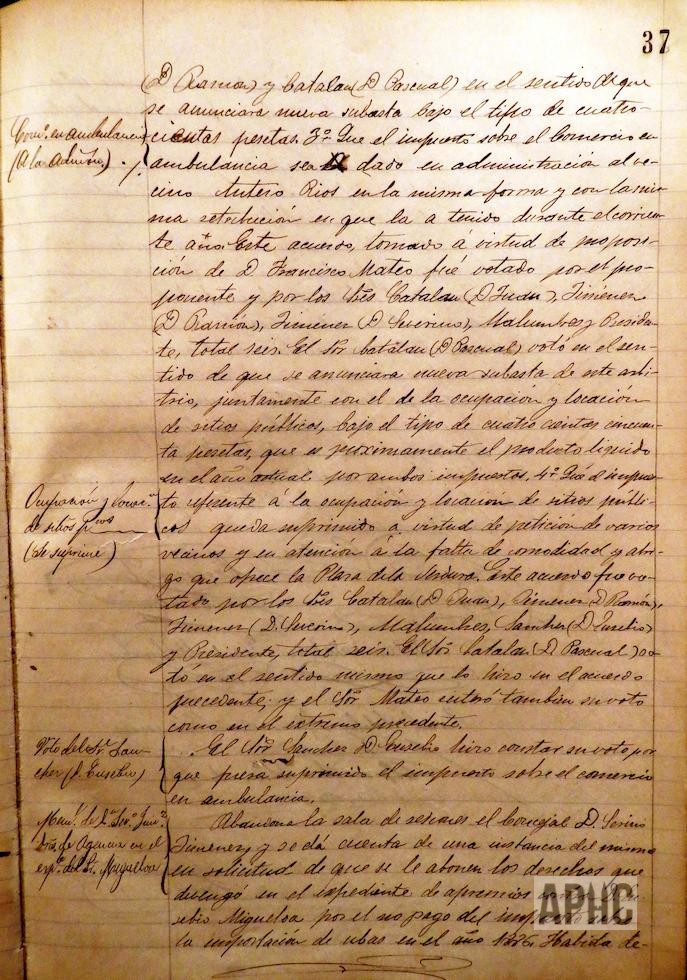 37
(D Ramon) y Catalan (D Pascual) en el sentido de que
se anunciara nueva subasta bajo el tipo de cuatro-
Com.º en ambulancia
(A la Admón.)
cientas pesetas. 3º Que el impuesto sobre el Comercio en
ambulancia sea dado en administración al ve-
cino Antero Rios en la misma forma y con la mis-
ma retribución en que la a tenido durante el corrien-
te año. Este acuerdo, tomado á virtud de proposi-
ción de D. Francisco Mateo fué votado por el pro-
ponente y por los Sres Catalan (D Juan), Jiménez
(D Ramón), Jimenez (D Severino), Malumbres y Presiden-
te, total seis. El Sor Catalan (D Pascual) votó en el sen-
tido de que se anunciara nueva subasta de este arbi-
trio, juntamente con el de la ocupación y locación
de sitios públicos, bajo el tipo de cuatro cientas cincuen-
ta pesetas, que es proximamente el producto liquido
en el año actual por ambos impuestos. 4º Que el impues-
Ocupación y locac.n
de sitios pcos
(Se suprime)
to referente á la ocupación y locacion de sitios públi-
cos queda suprimido á virtud de petición de varios
vecinos y en atención á la falta de comodidad y abri-
go que ofrece la Plaza de la Verdura. Este acuerdo fue vo-
tado por los Sres Catalan (D Juan), Jimenez (D Ramón),
Jimenez (D. Severino), Malumbres, Sanchez (D Eusebio)
y Presidente, total seis. El Sor Catalan (D Pascual) vo-
tó en el sentido mismo que lo hizo en el acuerdo
precedente; y el Sor Mateo tambien su voto
como en el extremo precedente.
Voto del Sr. San-
chez (D. Eusebio)
El Sor Sanchez D Eusebio hizo constar su voto, por
que fuera suprimido el impuesto sobre el comercio
en ambulancia.
de Agramon en el
exp.te del Sr. Migueloa
Abandona la sala de sesiones el Concejal D. Severino
Jimenez y se dá cuenta de una instancia del mismo
en solicitud de que se le abonen los derechos que
devengó en el expediente de apremios
sebio Migueloa por el no pago del
la importación de ubas en el año Habida de-
APHC